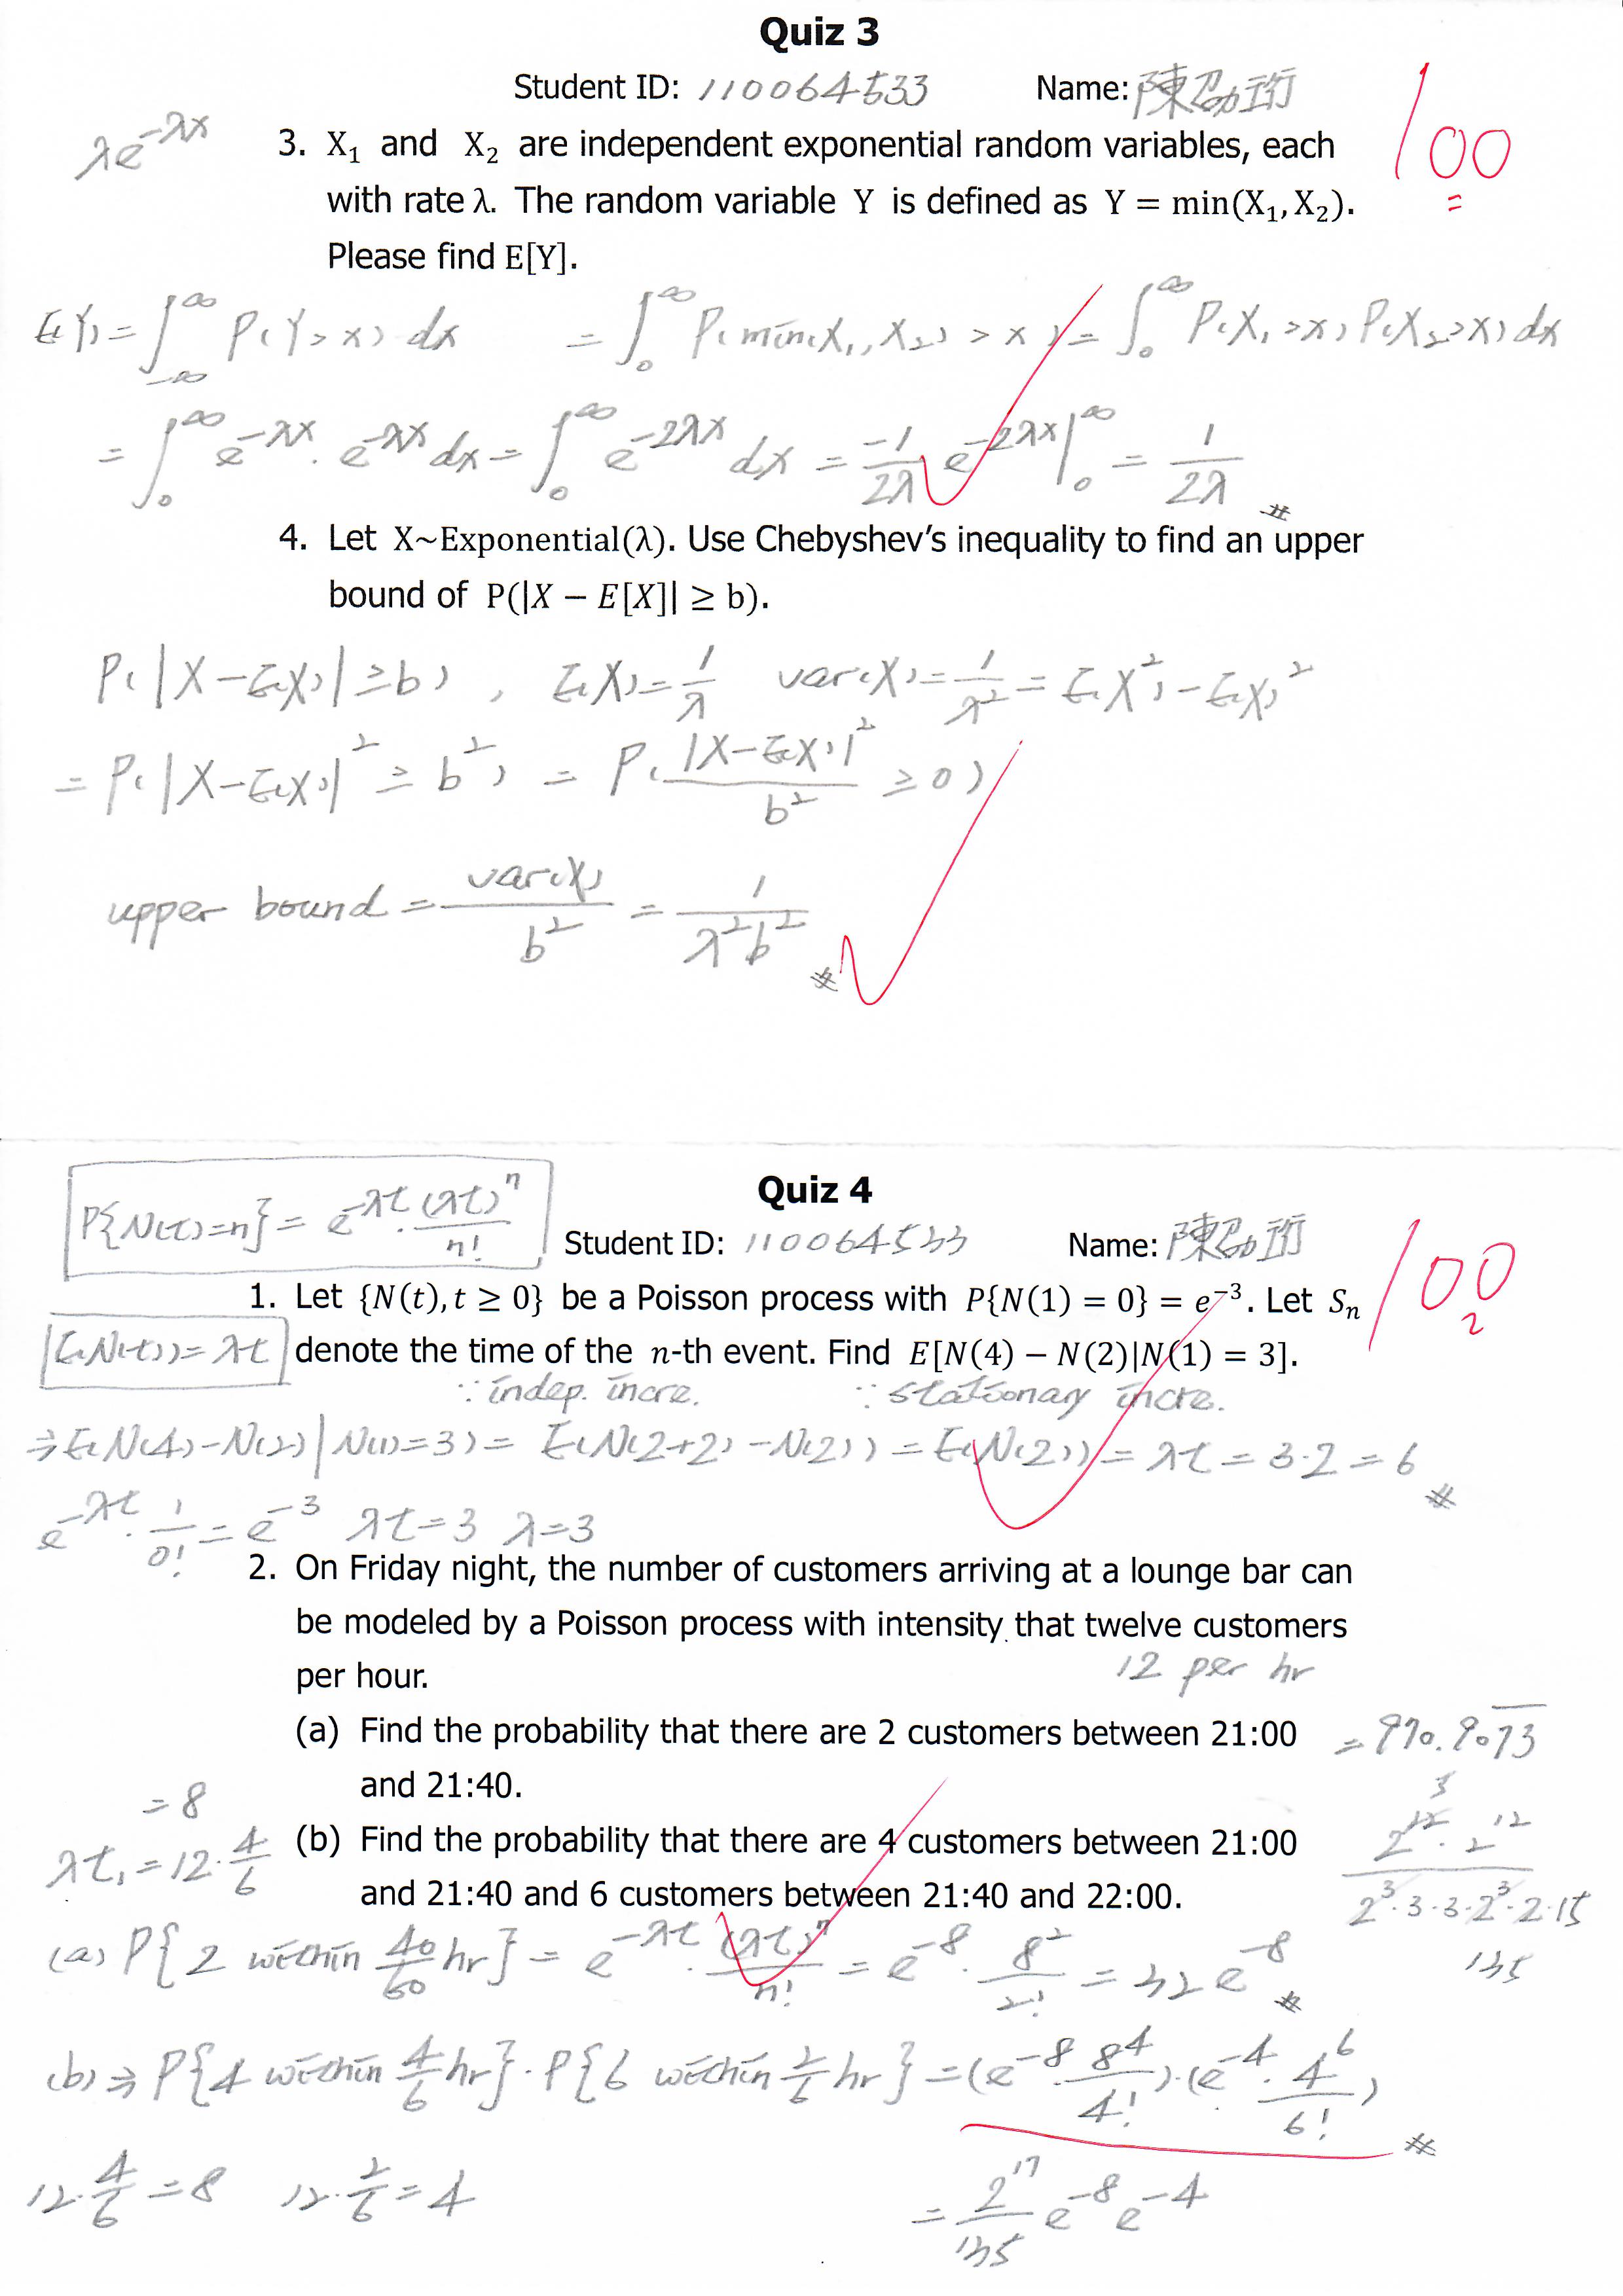 Quiz 3
Student ID: 110064533 Name: 陳劭珩
100
λe^{-λx}
3. X₁ and X₂ are independent exponential random variables, each
with rate λ. The random variable Y is defined as Y = min(X₁, X₂).
Please find E[Y].
E(Y) = ∫_{-∞}^{∞} P(Y>x) dx = ∫_0^∞ P(min(X₁, X₂) > x) = ∫_0^∞ P(X₁>x) P(X₂>x) dx
= ∫_0^∞ e^{-λx} · e^{-λx} dx = ∫_0^∞ e^{-2λx} dx = \frac{-1}{2λ} e^{-2λx} |_0^∞ = \frac{1}{2λ} #
4. Let X~Exponential(λ). Use Chebyshev's inequality to find an upper
bound of P(|X − E[X]| ≥ b).
P(|X-E(X)| ≥ b), E(X) = \frac{1}{λ} var(X) = \frac{1}{λ²} = E(X²) - E(X)²
= P(|X-E(X)|² ≥ b²) = P(\frac{|X-E(X)|²}{b²} ≥ 0)
upper bound = \frac{var(X)}{b²} = \frac{1}{λ²b²} #
Quiz 4
P{N(t)=n} = e^{-λt} · \frac{(λt)^n}{n!}
Student ID: 110064533 Name: 陳劭珩
100
1. Let {N(t), t ≥ 0} be a Poisson process with P{N(1) = 0} = e⁻³. Let Sₙ
E(N(t)) = λt
denote the time of the n-th event. Find E[N(4) − N(2)|N(1) = 3].
∵ indep. incre. ∵ stationary incre.
⇒ E(N(4)-N(2)|N(1)=3) = E(N(2+2)-N(2)) = E(N(2)) = λt = 3·2 = 6 #
e^{-λt} · \frac{1}{0!} = e^{-3} λt=3 λ=3
2. On Friday night, the number of customers arriving at a lounge bar can
be modeled by a Poisson process with intensity that twelve customers
per hour.
12 per hr
(a) Find the probability that there are 2 customers between 21:00
and 21:40.
= 970.9073
= 8
λt₁ = 12·\frac{4}{6}
(b) Find the probability that there are 4 customers between 21:00
and 21:40 and 6 customers between 21:40 and 22:00.
3
\frac{2^{12} · 2^{12}}{2³·3·3·2³·2·15}
135
(a) P{2 within \frac{40}{60} hr} = e^{-λt} · \frac{(λt)^n}{n!} = e^{-8} · \frac{8²}{2!} = 32e^{-8} #
(b) ⇒ P{4 within \frac{4}{6} hr} · P{6 within \frac{2}{6} hr} = (e^{-8} · \frac{8⁴}{4!}) · (e^{-4} · \frac{4⁶}{6!}) #
12·\frac{4}{6} = 8 12·\frac{2}{6} = 4
= \frac{2^{17}}{135} e^{-8} e^{-4}